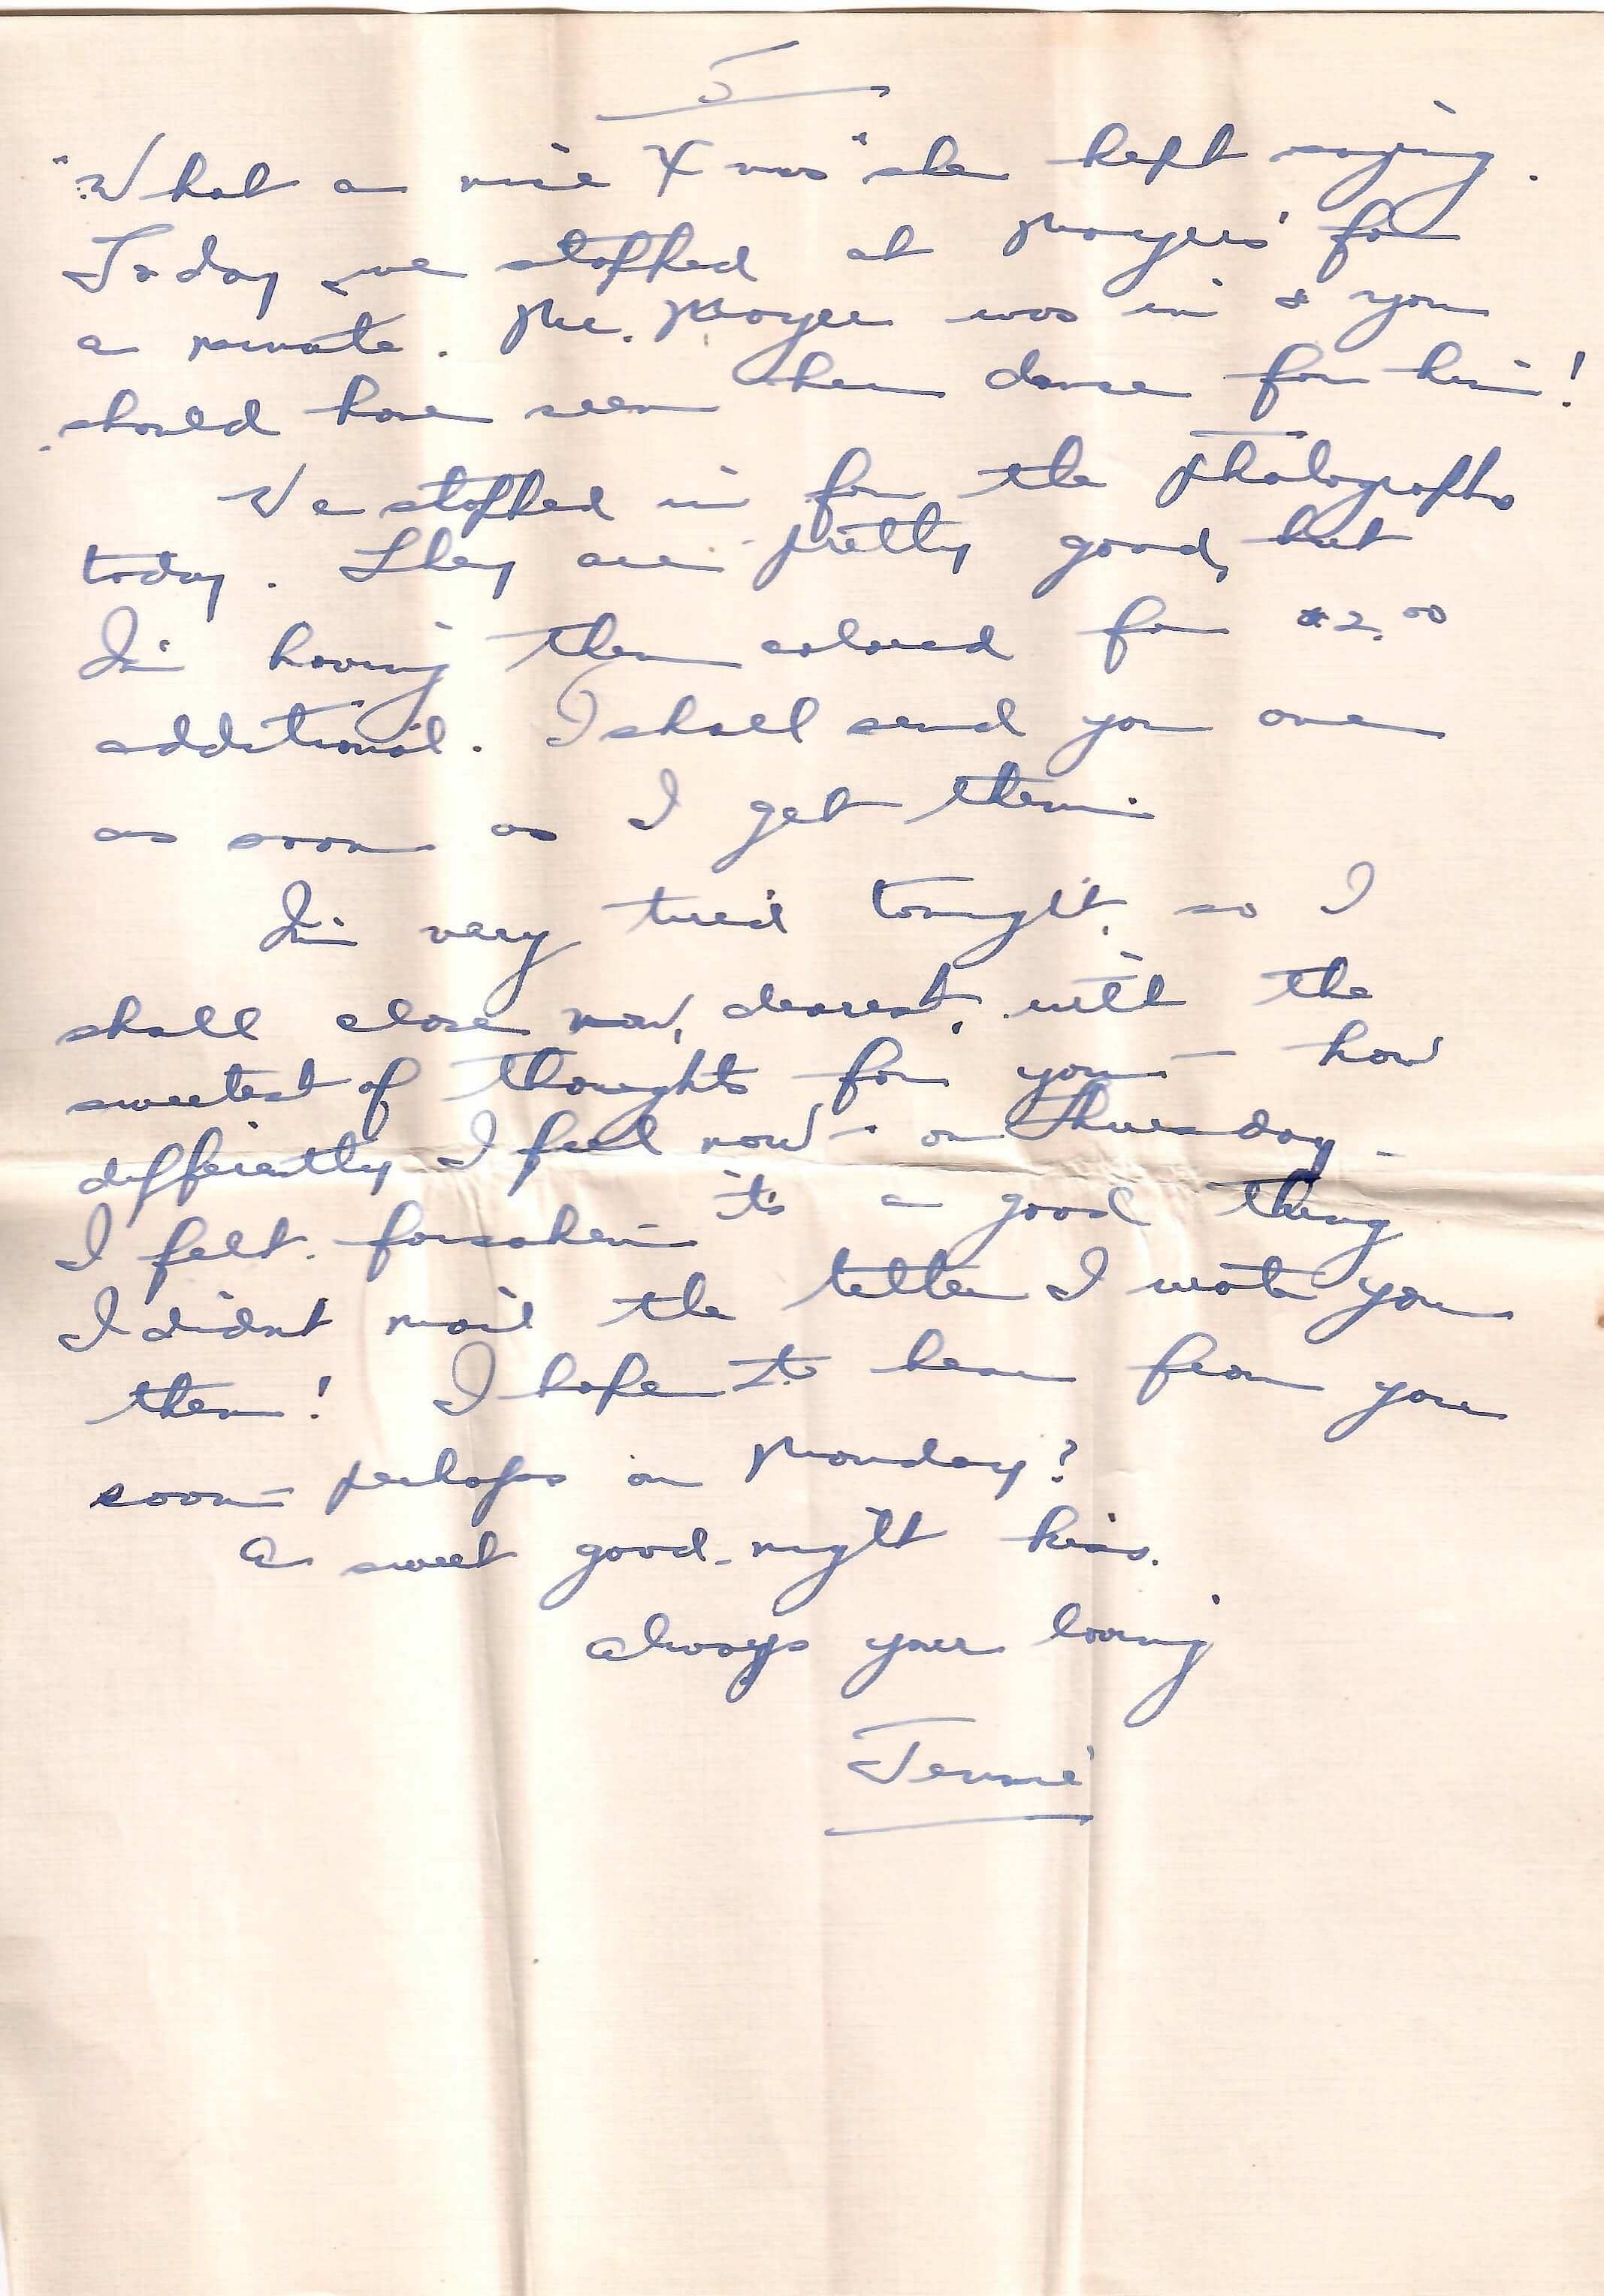 5
"What a nice Xmas" she kept saying.
Today we stopped at Moyers' for
a minute. Mr. Moyer was in & you
should have seen her dance for him!
We stopped in for the photographs
today. They are pretty good, but
I'm having them colored for $2.00
additional. I shall send you one
as soon as I get them.
I'm very tired tonight, so I
shall close now, dearest, with the
sweetest of thoughts for you — how
differently I feel now — on Thursday
I felt forsaken — it's a good thing
I didnt mail the letter I wrote you
then! I hope to hear from you
soon — perhaps on Monday?
A sweet good-night kiss.
Always your loving
Jennie